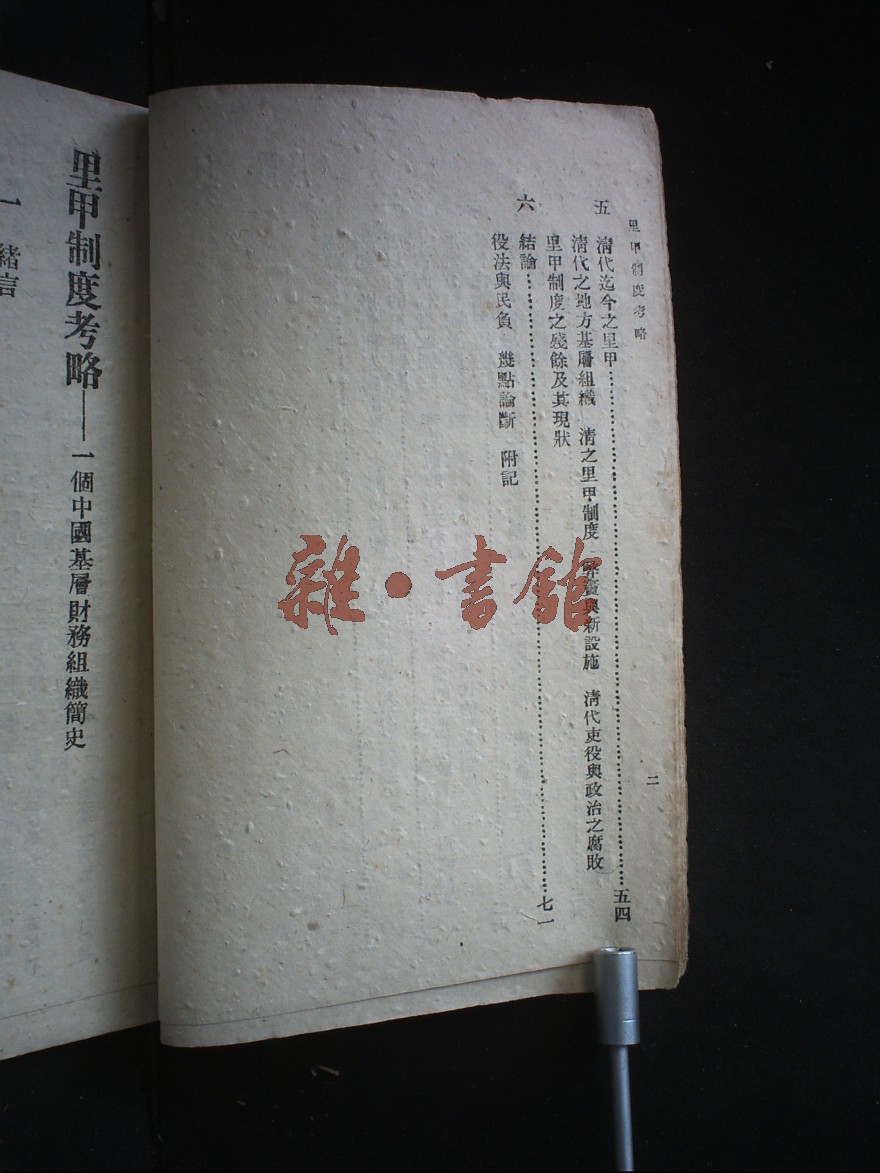 里甲制度考略
二
五 清代迄今之里甲……五四
清代之地方基層組織 清之里甲制度 與新設施 清代吏役與政治之腐敗
里甲制度之殘餘及其現狀
六 結論……七一
役法與民負 幾點論斷 附記
雜·書館
里甲制度考略——一個中國基層財務組織簡史
一 緒言